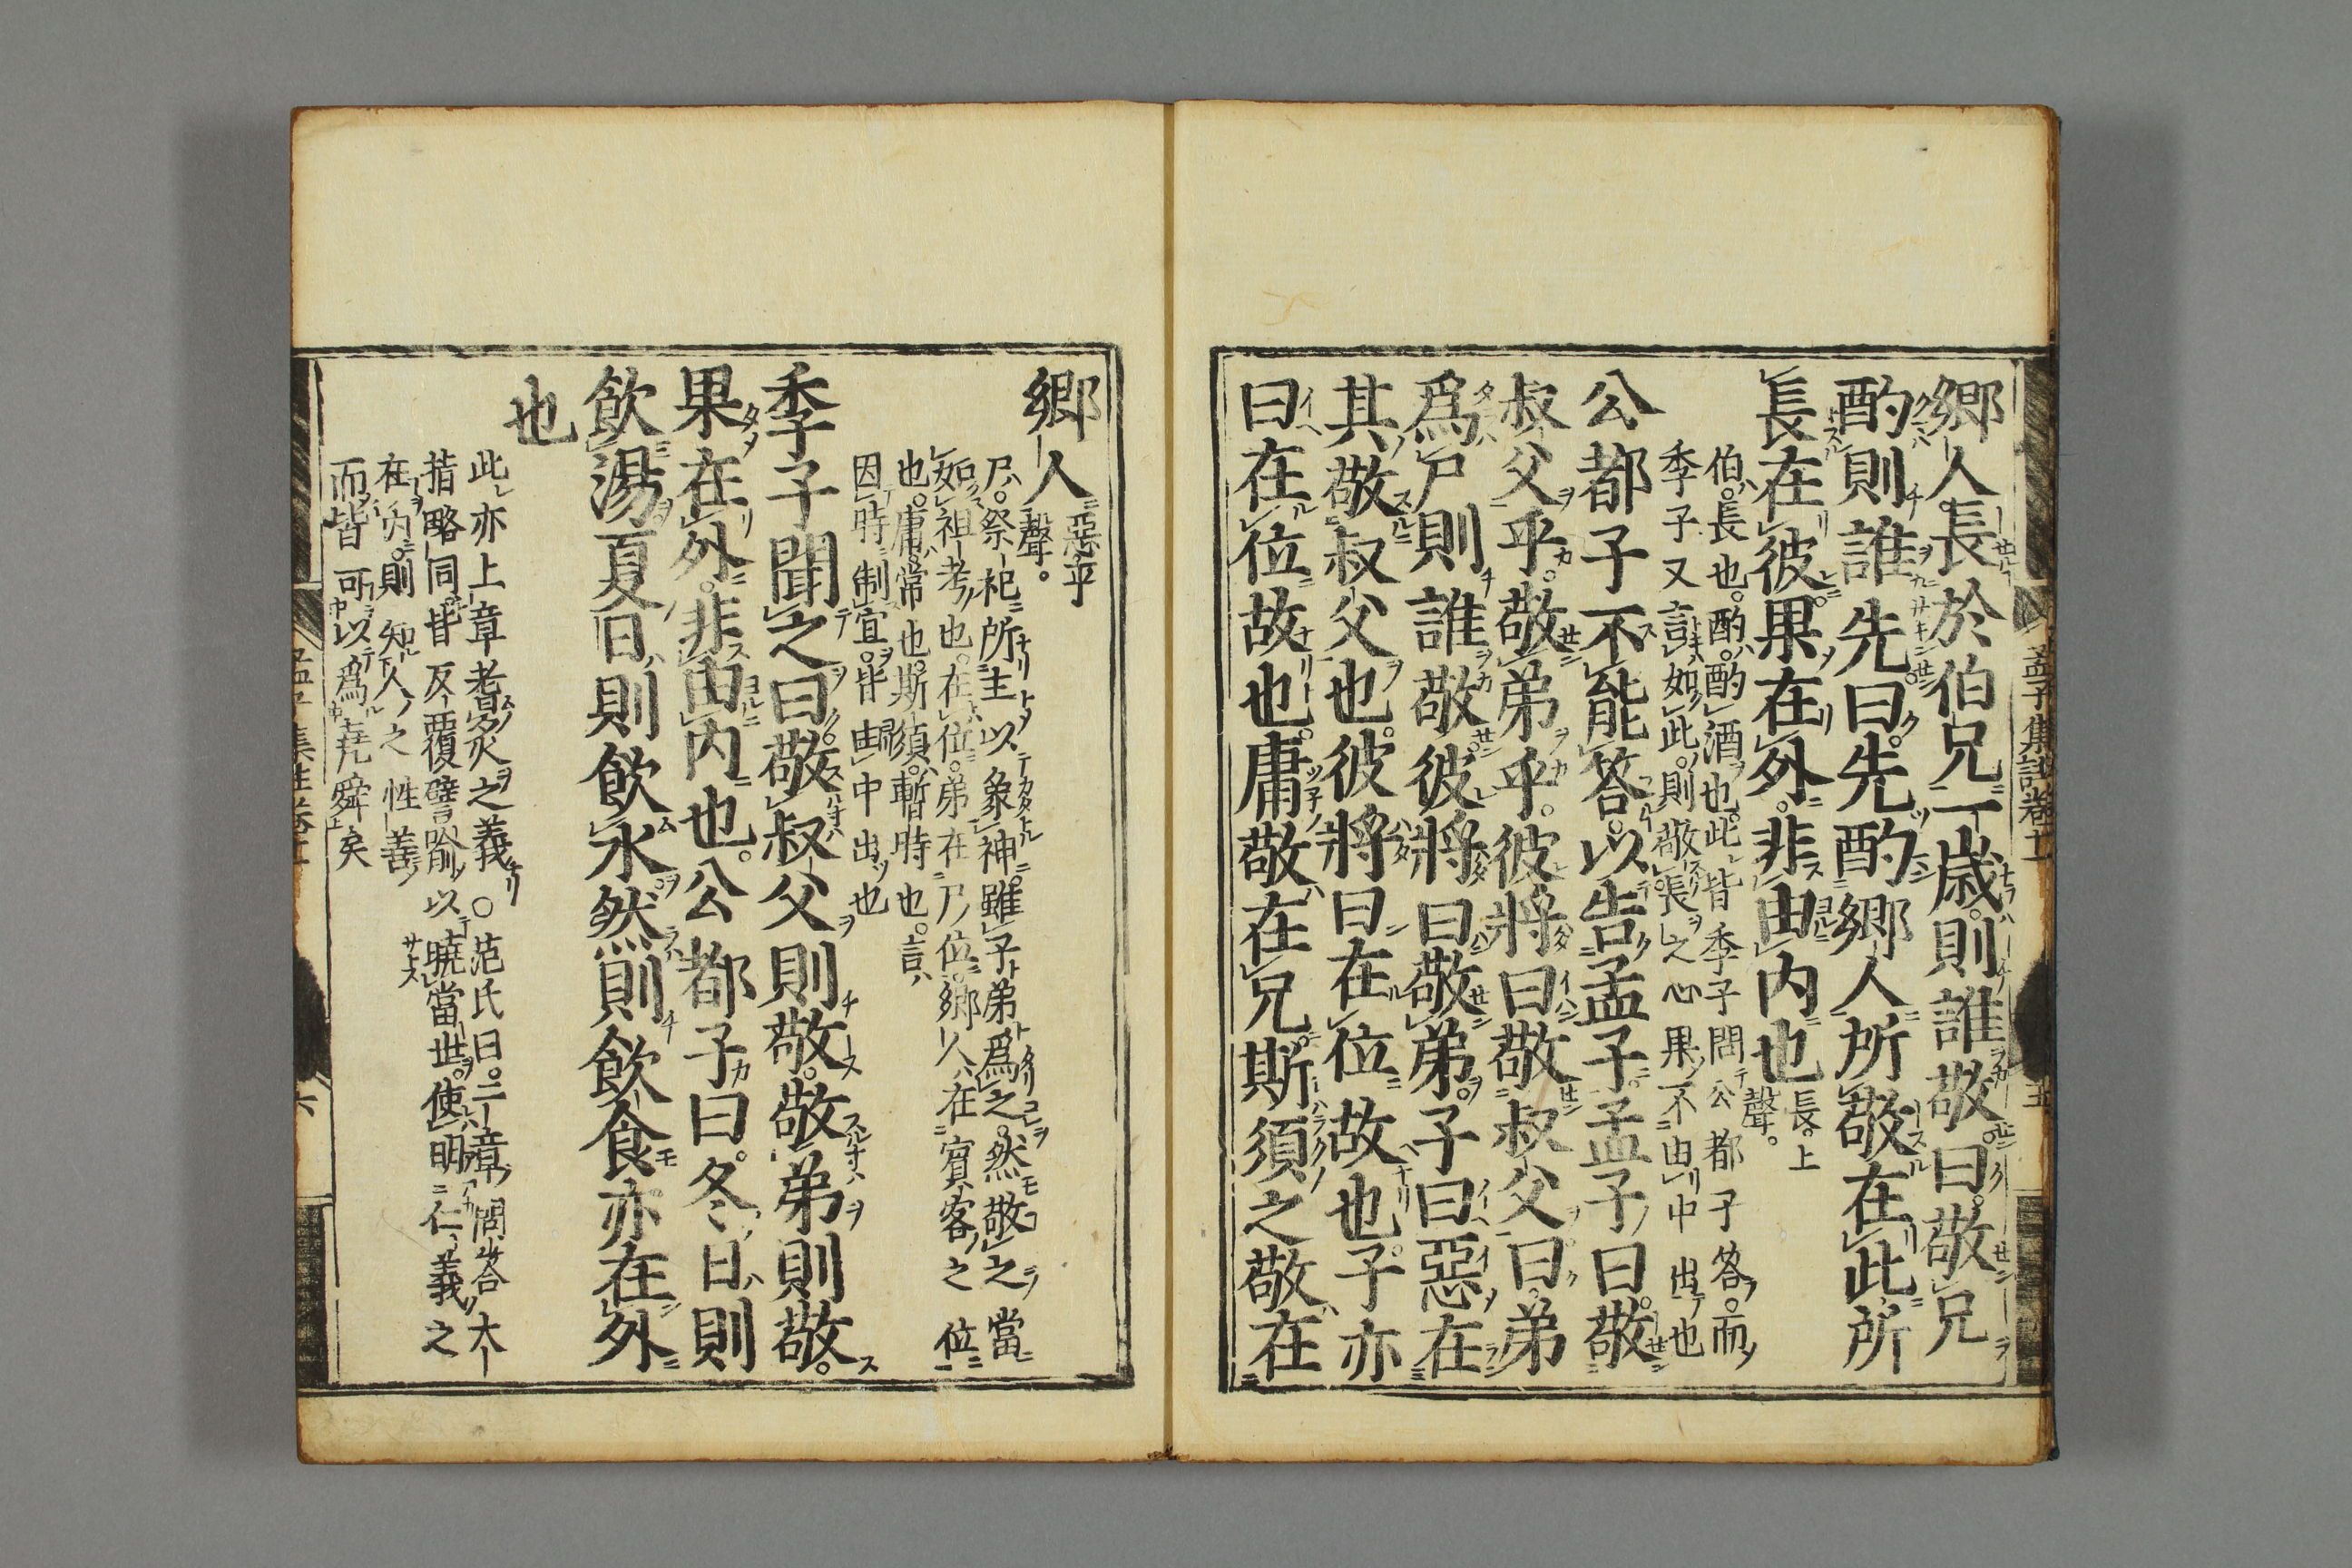 鄉人長於伯兄一歲則誰敬曰敬兄
酌則誰先曰先酌鄉人所敬在此所
長在彼果在外非由內也長上
聲
伯長也酌酌酒也此皆季子問公都子答而
季子又言如此則敬長之心果不由中出也
公都子不能答以告孟子孟子曰敬
叔父乎敬弟乎彼將曰敬叔父曰弟
爲尸則誰敬彼將曰敬弟子曰惡在
其敬叔父也彼將曰在位故也子亦
曰在位故也庸敬在兄斯須之敬在
鄉人惡平
聲
尸祭祀所主以象神雖子弟爲之然敬之當
如祖考也在位弟在尸位鄉人在賓客之位
也庸常也斯須暫時也言
因時制宜皆由中出也
季子聞之曰敬叔父則敬敬弟則敬
果在外非由內也公都子曰冬日則
飲湯夏日則飲水然則飲食亦在外
也
此亦上章耆炙之義○范氏曰二章問答大
指略同皆反覆譬喻以曉當世使明仁義之
在內則知人之性善
而皆可以爲堯舜矣